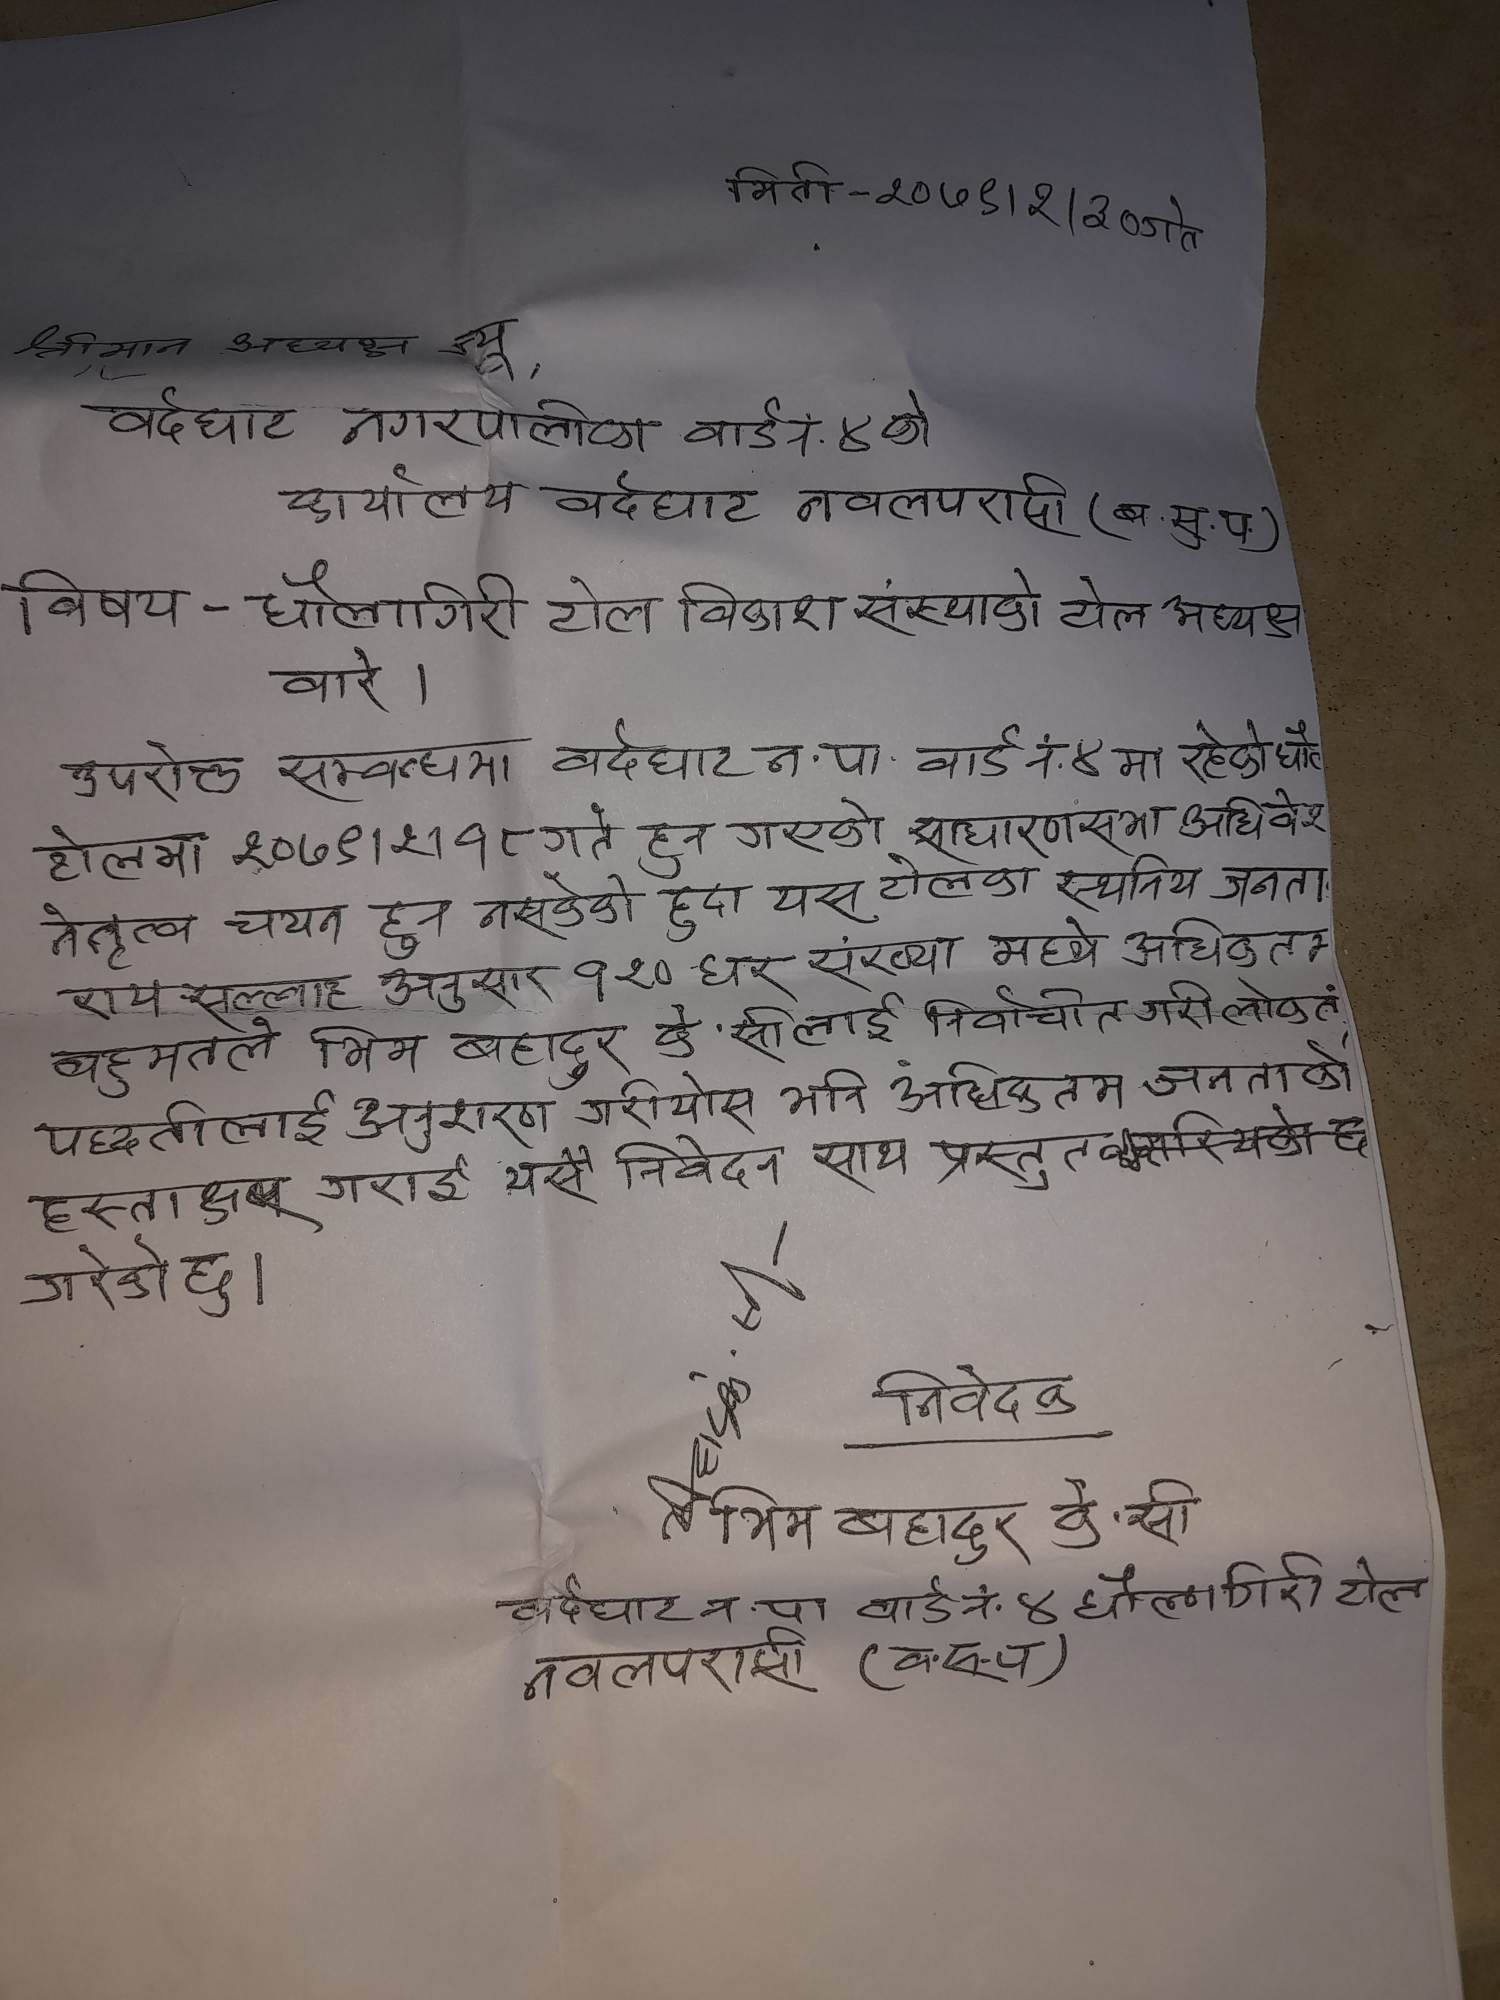 मिती - २०७९।२।३०गते
श्रीमान अध्यक्ष ज्यू,
वर्दघाट नगरपालीका वार्ड नं. ४ को
कार्यालय वर्दघाट नवलपरासी (ब.सु.प.)
विषय - धौलागिरी टोल विकाश संस्थाको टोल अध्यक्ष
वारे ।
उपरोक्त सम्वन्धमा वर्दघाट न.पा. वार्ड नं. ४ मा रहेको धौल
टोलमा २०७९।२।१८ गते हुन गएको साधारणसभा अधिवेश
नेतृत्व चयन हुन नसकेको हुदा यस टोलका स्थनिय जनता
राय सल्लाह अनुसार १२० घर संख्या मध्ये अधिकतम
बहुमतले भिम बहादुर के.सीलाई निर्वाचीत गरी लोकतं
पद्धतीलाई अनुशरण गरीयोस भनि अधिकतम जनताको
हस्ताक्षर गराई यसै निवेदन साथ प्रस्तुत
गरेको छु ।
निवेदक
भिम बहादुर के.सी
वर्दघाट न.पा वार्ड नं. ४ धौलागिरी टोल
नवलपरासी (ब.सु.प)